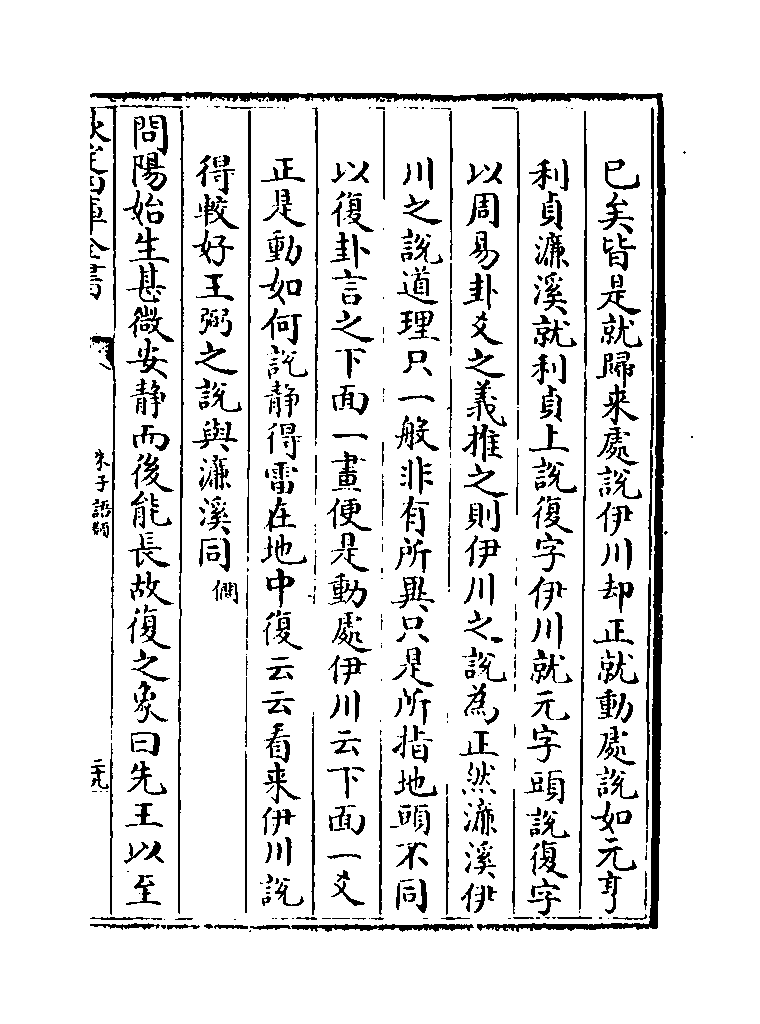 已矣皆是就歸来處說伊川却正就動處說如元亨
利貞濂溪就利貞上說復字伊川就元字頭說復字
以周易卦爻之義推之則伊川之說為正然濂溪伊
川之說道理只一般非有所異只是所指地頭不同
以復卦言之下面一畫便是動處伊川云下面一爻
正是動如何說静得雷在地中復云云看来伊川說
得較好王弼之說與濂溪同僩
問陽始生甚微安静而後能長故復之象曰先王以至
欽定四庫全書
朱子語類
二九